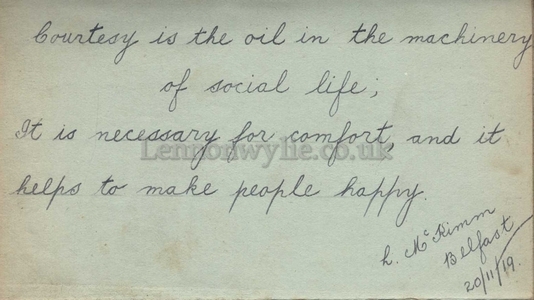 Courtesy is the oil in the machinery
of social life;
It is necessary for comfort, and it
Lennonwylie.co.uk
helps to make people happy.
L. McKimm
Belfast
20/11/19.